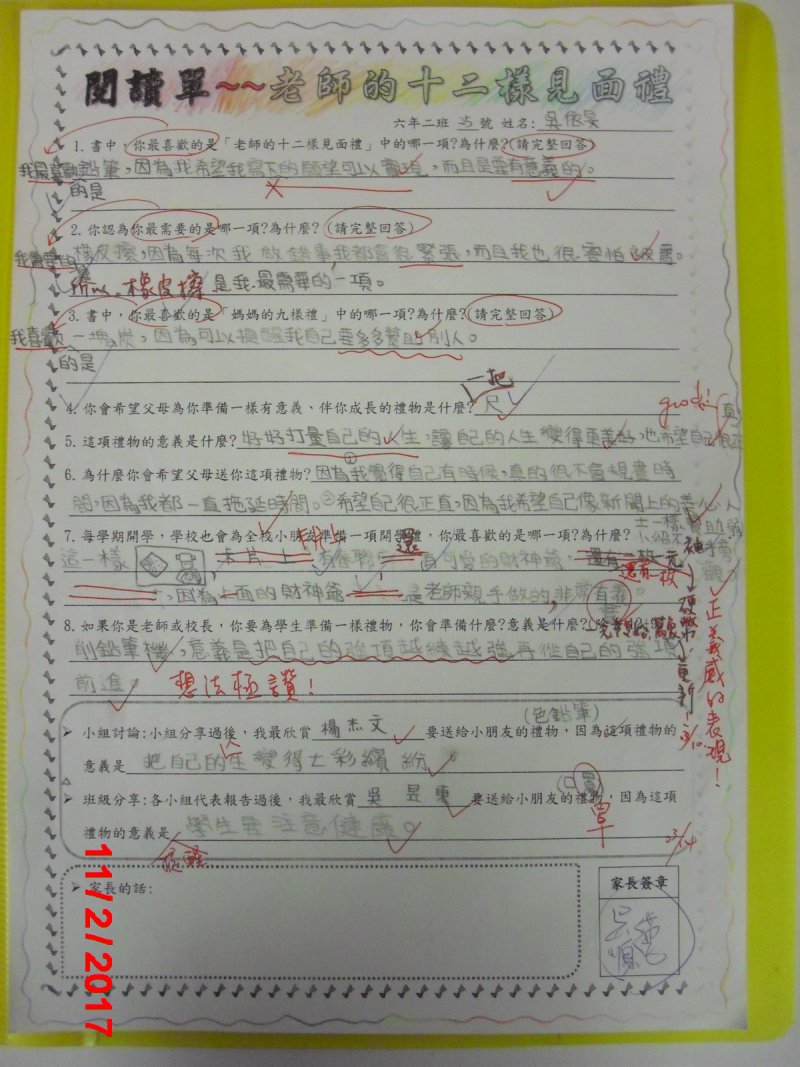 閱讀單~~老師的十二樣見面禮
六年二班 號 姓名:吳依旻
1. 書中,你最喜歡的是「老師的十二樣見面禮」中的哪一項?為什麼?(請完整回答)
我最喜歡的是鉛筆,因為我希望我寫下的願望可以實現,而且是要有意義的。
2. 你認為你最需要的是哪一項?為什麼?(請完整回答)
我需要的橡皮擦,因為每次我做錯事我都會很緊張,而且我也很害怕
所以,橡皮擦是我最需要的一項。
3. 書中,你最喜歡的是「媽媽的九樣禮」中的哪一項?為什麼?(請完整回答)
我喜歡的是一塊炭,因為可以提醒我自己要多多幫助別人。
4. 你會希望父母為你準備一樣有意義、伴你成長的禮物是什麼?一把尺
good!
5. 這項禮物的意義是什麼?好好打量自己的人生,讓自己的人生變得更美好,也希望自己很正
6. 為什麼你會希望父母送你這項禮物?因為我覺得自己有時候,真的很不會規畫時
間,因為我都一直拖延時間。②希望自己很正直,因為我希望自己像新聞上的善心人
士一樣幫助弱
7. 每學期開學,學校也會為全校小朋友準備一項開學禮,你最喜歡的是哪一項?為什麼?
這一樣 卡片上有春聯 還有可愛的財神爺 還有一枚一元
,因為上面的財神爺 是老師親手做的,非常有意義
8. 如果你是老師或校長,你要為學生準備一樣禮物,你會準備什麼?意義是什麼?
削鉛筆機,意義是把自己的強項越練越強再從自己的強項
前進。 想法極讚!
正義感的表現!
➢ 小組討論:小組分享過後,我最欣賞 楊杰文 要送給小朋友的禮物(色鉛筆),因為這項禮物的
意義是 把自己的人生變得七彩繽紛。
➢ 班級分享:各小組代表報告過後,我最欣賞 吳昱東 要送給小朋友的禮物(口罩),因為這項
罩
禮物的意義是 提醒學生要注意健康。
➢ 家長的話:
家長簽章
11/2/2017